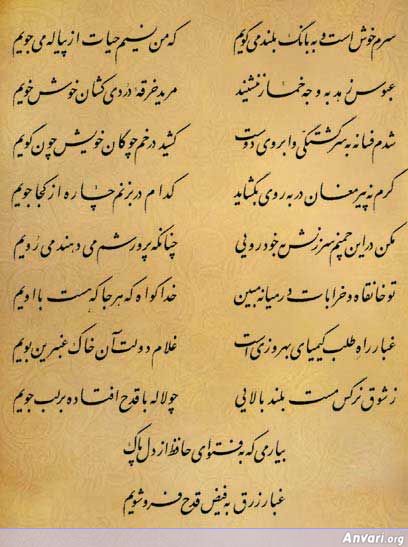 سرم خوش است و به بانگ بلند می گویم که من نسیم حیات از پیاله می جویم
عبوس زهد به وجه خمار ننشیند مرید خرقه دردی کشان خوش خویم
شدم فسانه به سرگشتگی و ابروی دوست کشید در خم چوگان خویش چون گویم
گرم نه پیر مغان در به روی بگشاید کدام در بزنم چاره از کجا جویم
مکن در این چمنم سرزنش به خودرویی چنانکه پرورشم می دهند می رویم
تو خانقاه و خرابات در میانه مبین خدا گواه که هر جا که هست با اویم
غبار راه طلب کیمیای بهروزی است غلام دولت آن خاک عنبرین بویم
ز شوق نرگس مست بلند بالایی چو لاله با قدح افتاده بر لب جویم
بیار می که به فتوای حافظ از دل پاک
غبار زرق به فیض قدح فرو شویم
Anvari.org